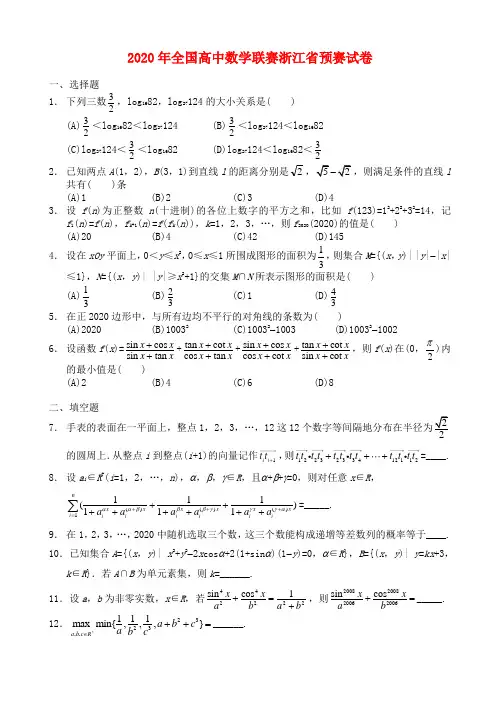 2020年全国高中数学联赛浙江省预赛试卷
一、选择题
1. 下列三数3/2,log₁₆82,log₂₇124的大小关系是( )
(A)3/2<log₁₆82<log₂₇124 (B)3/2<log₂₇124<log₁₆82
(C)log₂₇124<3/2<log₁₆82 (D)log₂₇124<log₁₆82<3/2
2. 已知两点A(1,2),B(3,1)到直线l的距离分别是√2,√5−√2,则满足条件的直线l
共有( )条
(A)1 (B)2 (C)3 (D)4
3. 设f(n)为正整数n(十进制)的各位上数字的平方之和,比如f(123)=1²+2²+3²=14,记
f₁(n)=f(n),fₖ₊₁(n)=f(fₖ(n)),k=1,2,3,…,则f₂₀₂₀(2020)的值是( )
(A)20 (B)4 (C)42 (D)145
4. 设在xOy平面上,0<y≤x²,0≤x≤1所围成图形的面积为1/3,则集合M={(x,y)||y|−|x|
≤1},N={(x,y)| |y|≥x²+1}的交集M∩N所表示图形的面积是( )
(A)1/3 (B)2/3 (C)1 (D)4/3
5. 在正2020边形中,与所有边均不平行的对角线的条数为( )
(A)2020 (B)1003² (C)1003²−1003 (D)1003²−1002
6. 设函数f(x)=(sin x+cos x)/(sin x+tan x)+(tan x+cot x)/(cos x+tan x)+(sin x+cos x)/(cos x+cot x)+(tan x+cot x)/(sin x+cot x),则f(x)在(0,π/2)内
的最小值是( )
(A)2 (B)4 (C)6 (D)8
二、填空题
7. 手表的表面在一平面上,整点1,2,3,…,12这12个数字等间隔地分布在半径为√2/2
的圆周上.从整点i到整点(i+1)的向量记作tᵢtᵢ₊₁,则t₁t₂•t₂t₃+t₂t₃•t₃t₄+⋯+t₁₂t₁•t₁t₂=____.
8. 设aᵢ∈R⁺(i=1,2,…,n),α,β,γ∈R,且α+β+γ=0,则对任意x∈R,
∑ⁿᵢ₌₁(1/(1+aᵢ^(αx)+aᵢ^((α+β)x))+1/(1+aᵢ^(βx)+aᵢ^((β+γ)x))+1/(1+aᵢ^(γx)+aᵢ^((γ+α)x)))=_____.
9. 在1,2,3,…,2020中随机选取三个数,这三个数能构成递增等差数列的概率等于____.
10.已知集合A={(x,y)| x²+y²−2xcosα+2(1+sinα)(1−y)=0,α∈R},B={(x,y)| y=kx+3,
k∈R}.若A∩B为单元素集,则k=______.
11.设a,b为非零实数,x∈R,若sin⁴x/a²+cos⁴x/b²=1/(a²+b²),则sin²⁰⁰⁸x/a²⁰⁰⁶+cos²⁰⁰⁸x/b²⁰⁰⁶=_____.
12. max_(a,b,c∈R⁺) min{1/a,1/b²,1/c³,a+b²+c³}=______.